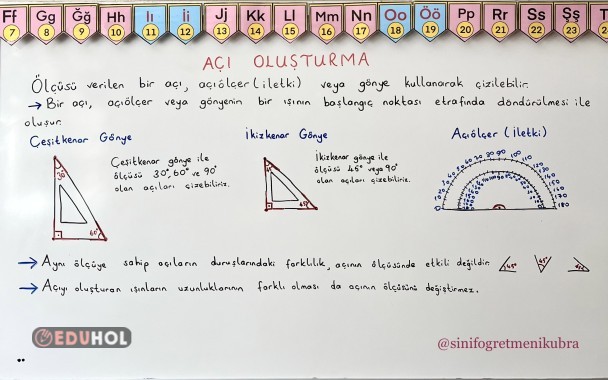 Ff Gg Ğğ Hh Iı İi Jj Kk Ll Mm Nn Oo Öö Pp Rr Ss Şş T
7 8 9 10 11 12 13 14 15 16 17 18 19 20 21 22 23 2
AÇI OLUŞTURMA
Ölçüsü verilen bir açı, açıölçer (iletki) veya gönye kullanarak çizilebilir.
→ Bir açı, açıölçer veya gönyenin bir ışının başlangıç noktası etrafında döndürülmesi ile
oluşur.
Çeşitkenar Gönye
30°
60°
Çeşitkenar gönye ile
ölçüsü 30°, 60° ve 90°
olan açıları çizebiliriz.
İkizkenar Gönye
45°
İkizkenar gönye ile
ölçüsü 45° veya 90°
olan açıları çizebiliriz.
Açıölçer (İletki)
→ Aynı ölçüye sahip açıların duruşlarındaki farklılık, açının ölçüsünde etkili değildir. 45° 45°
→ Açıyı oluşturan ışınların uzunluklarının farklı olması da açının ölçüsünü değiştirmez.
EDUHOL
@sinifogretmenikubra